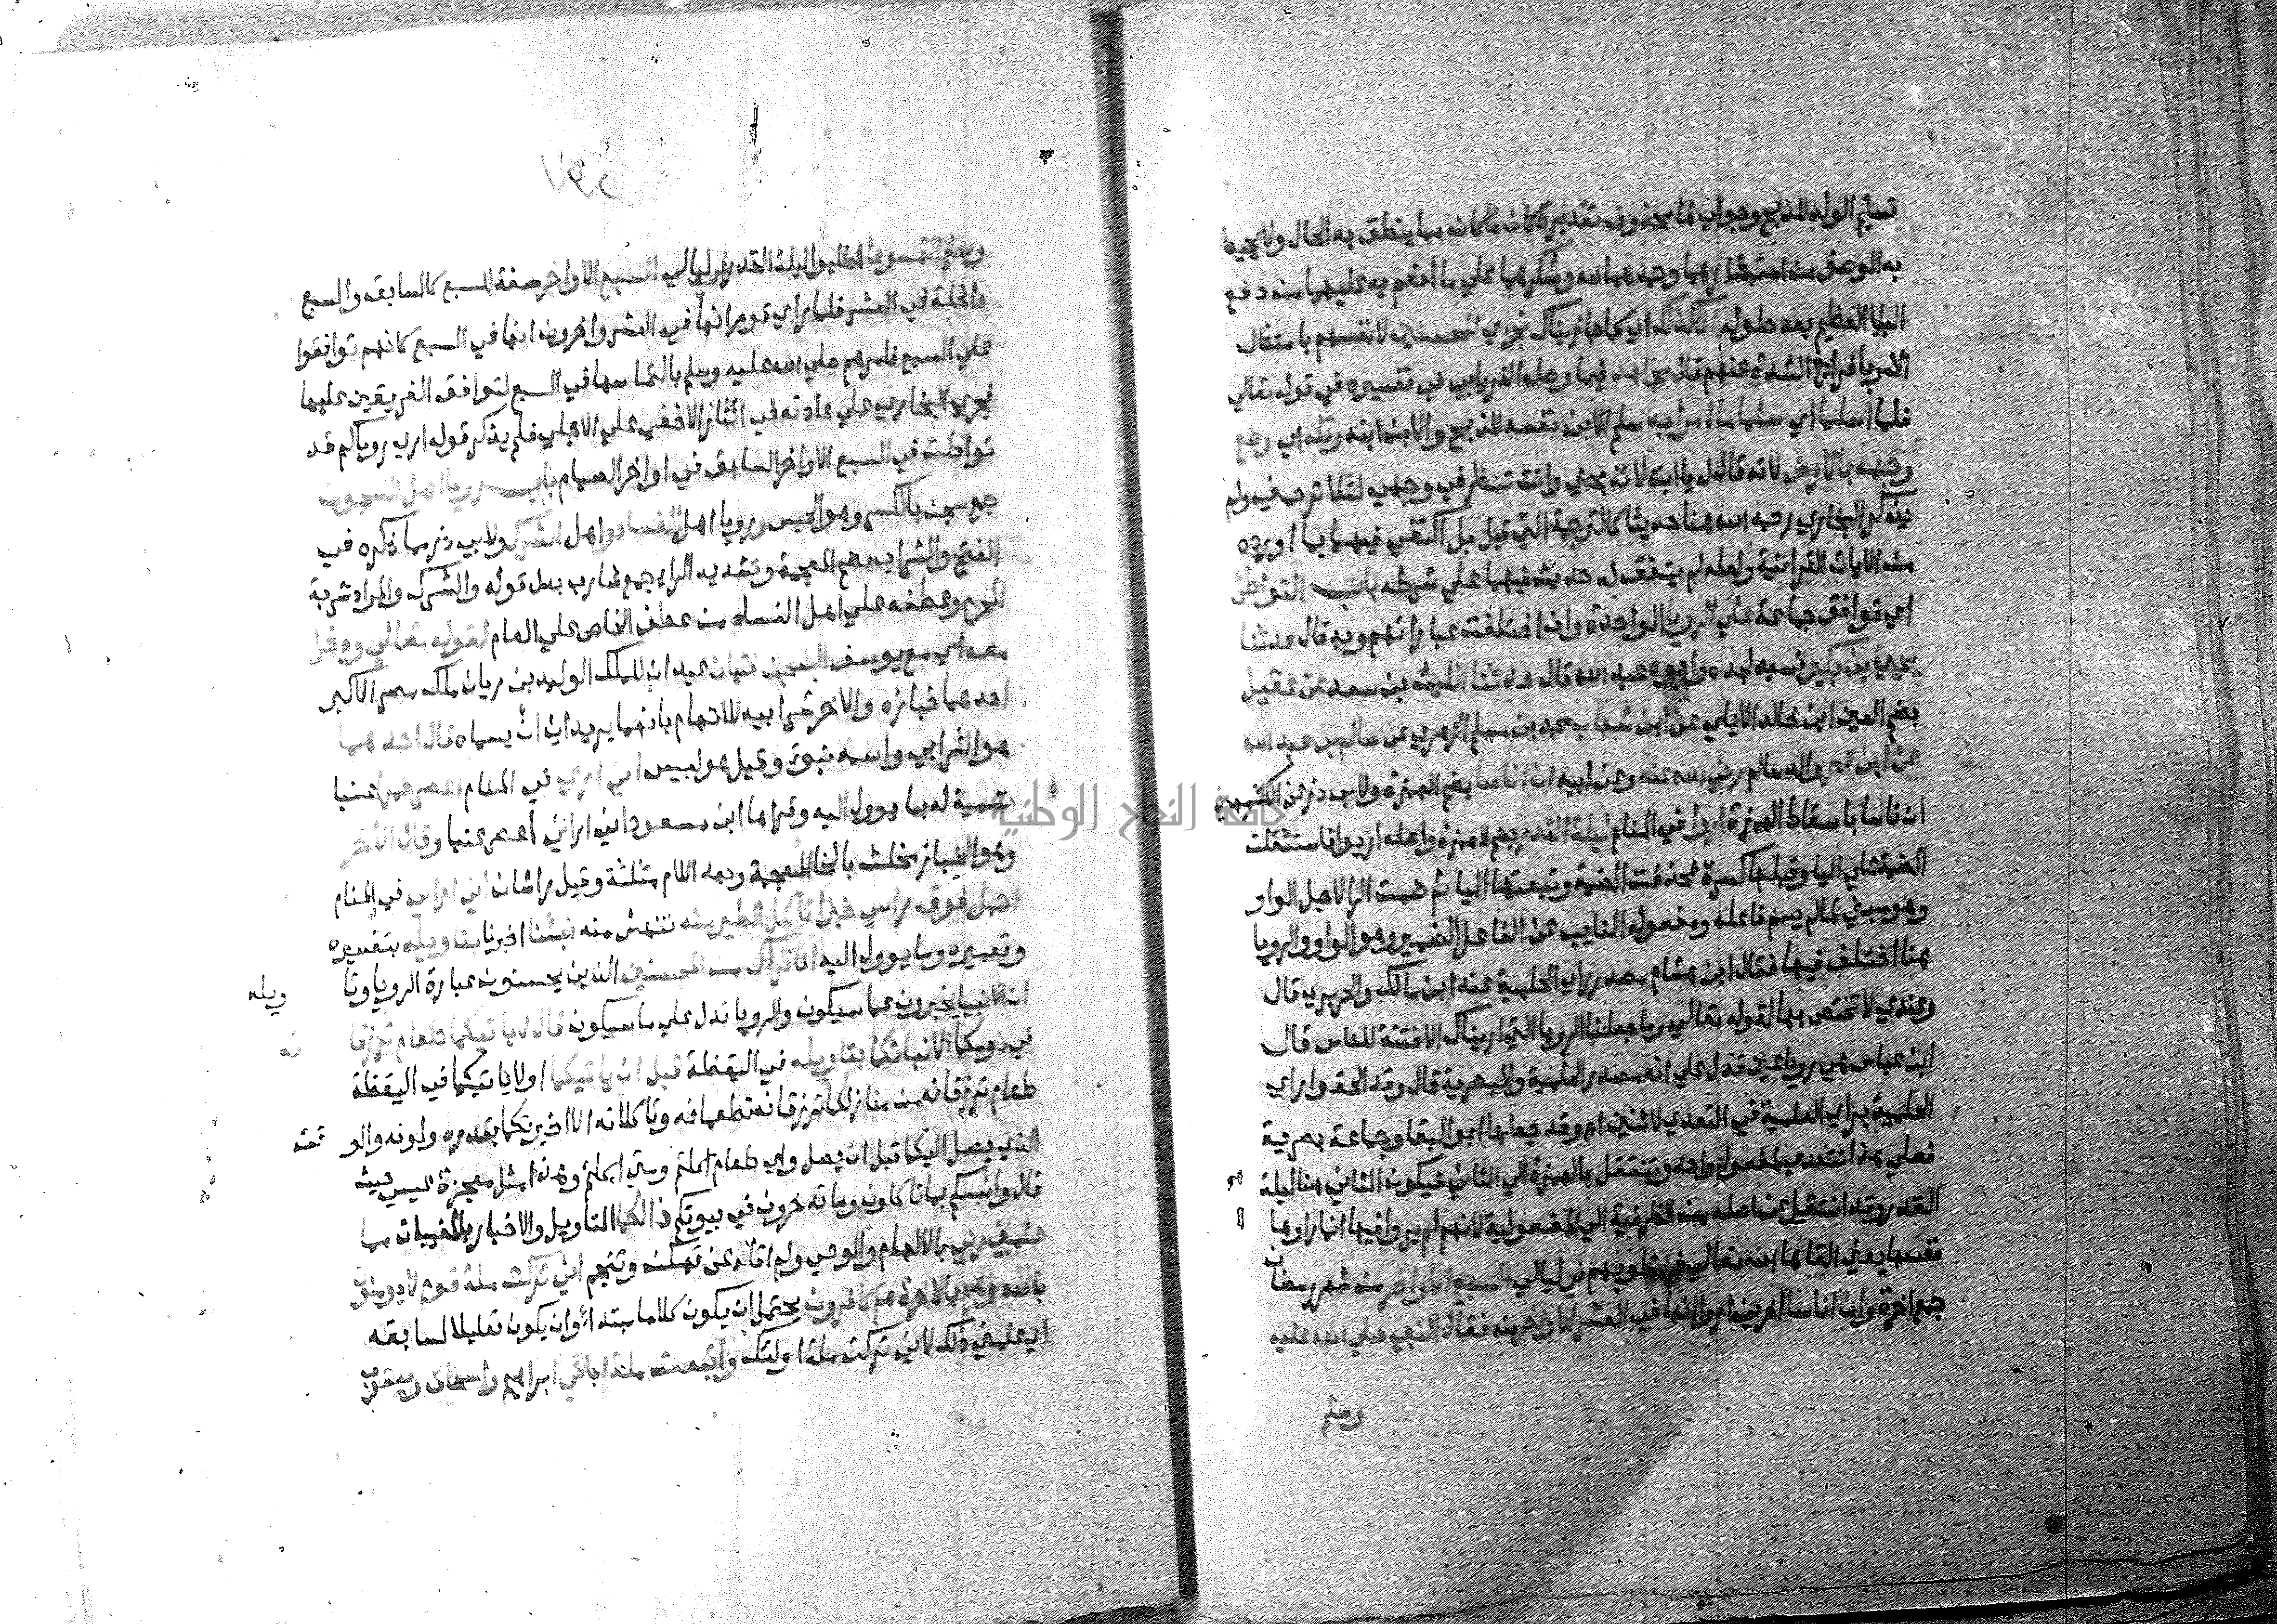 تسليم الولد للذبح وجواب لما محذوف تقديره كان ما كان مما ينطق به الحال ولا يحيط
به الوصف من استبشارهما وحمدهما لله وشكرهما علي ما انعم به عليهما من دفع
البلا العظيم بعد حلوله انا كذلك اي كما جازيناك نجزي المحسنين لانفسهم بامتثال
الامر بافراج الشدة عنهم قال مجاهد فيما وصله الفريابي في تفسيره في قوله تعالي
فلما اسلما اي سلما ما امرا به سلم الابن نفسه للذبح والاب ابنه وتله اي وضع
وجهه بالارض لانه قال له يا ابت لا تذبحني وانت تنظر في وجهي لئلا ترحمني ولم
يذكر البخاري رحمه الله هنا حديثا كالترجمة التي قبل بل اكتفي فيهما بما اورده
من الايات القرانية ولعله لم يتفق له حديث فيهما علي شرطه باب التواطئ
اي توافق جماعة علي الرويا الواحدة وان اختلفت عباراتهم وبه قال حدثنا
يحيي بن بكير نسبه لجده وابوه عبد الله قال حدثنا الليث بن سعد عن عقيل
بضم العين ابن خالد الايلي عن ابن شهاب محمد بن مسلم الزهري عن سالم بن عبد الله
عن ابن عمر والد سالم رضي الله عنه وعن ابيه ان اناسا بضم الهمزة ولابي ذر عن الكشميهني
ان ناسا باسقاط الهمزة اروا في المنام ليلة القدر بضم الهمزة واصله اريوا فاستثقلت
الضمة علي اليا وقبلها كسرة فحذفت الضمة وتبعتها اليا ثم ضمت الرا لاجل الواو
وهو مبني لما لم يسم فاعله ومفعوله النايب عن الفاعل الضمير وهو الواو والرويا
هنا اختلف فيها فقال ابن هشام مصدر راي الحلمية عند ابن مالك والحريري قال
وعندي لا تختص بها لقوله تعالي وما جعلنا الرويا التي اريناك الا فتنة للناس قال
ابن عباس هي رويا عين فدل علي انه مصدر الحلمية والبصرية قال وقد الحقوا راي
الحلمية براي العلمية في التعدي لاثنين اه وقد جعلها ابو البقا وجماعة بصرية
فعلي هذا تتعدي لمفعول واحد وتنتقل بالهمزة الي الثاني فيكون الثاني هنا ليلة
القدر وقد انتقل عن اصله من الظرفية الي المفعولية لانهم لم يروا فيها انما راوها
نفسها يعني القاها الله تعالي في قلوبهم في ليالي السبع الاواخر من شهر رمضان
جمع اخرة وان اناسا اخرين اروا انها في العشر الاواخر منه فقال النبي صلي الله عليه
وسلم
وسلم التمسوها اطلبوا ليلة القدر في ليالي السبع الاواخر صفة للسبع كالسابقه والسبع
داخلة في العشر فلما راي قوم انها في العشر واخرون انها في السبع كانهم توافقوا
علي السبع فامرهم صلي الله عليه وسلم بالتماسها في السبع لتوافق الفريقين عليها
فجري البخاري علي عادته في ايثار الاخفي علي الاجلي فلم يذكر قوله اري روياكم قد
تواطت في السبع الاواخر السابق في اواخر الصيام باب رويا اهل السجون
جمع سجن بالكسر وهو الحبس ورويا اهل الفساد واهل الشرك ولابي ذر مما ذكره في
الفتح والشراب بضم المعجمة وتشديد الرا جمع شارب بدل قوله والشرك والمراد شربة
المحرم وعطفه علي اهل الفساد من عطف الخاص علي العام لقوله تعالي ودخل
معه اي مع يوسف السجن فتيان عبدان للملك الوليد بن ريان ملك مصر الاكبر
احدهما خبازه والاخر شرابيه للاتهام بانهما يريدان ان يسماه قال احدهما
هو الشرابي واسمه نبوء وقيل هو لبيس اني اراني في المنام اعصر خمرا عنبا
تسمية له بما يوول اليه وقراها ابن مسعود اني اراني اعصر عنبا وقال الاخر
وهو الخباز مخلث بالخا المعجمة وبعد اللام مثلثة وقيل راشان اني اراني في المنام
احمل فوق راسي خبزا تاكل الطير منه تنهش منه نبئنا اخبرنا بتاويله بتفسيره
وتعبيره وما يوول اليه انا نراك من المحسنين الذين يحسنون عبارة الرويا وتا
ويله
ان الانبيا يخبرون عما سيكون والرويا تدل علي ما سيكون قال لا ياتيكما طعام ترزقا
نه
في نومكما الا نباتكما بتاويله في اليقظة قبل ان ياتيكما او لا ياتيكما في اليقظة
طعام ترزقانه من منازلكما ترزقانه تطعمانه وتاكلانه الا اخبرتكما بقدره ولونه والو
قت
الذي يصل اليكما قبل ان يصل واي طعام اكلتم ومتي اكلتم وهذا مثل معجزة عيسي حيث
قال وانبئكم بما تاكلون وما تدخرون في بيوتكم ذالكما التاويل والاخبار بالمغيبات مما
علمني ربي بالالهام والوحي ولم اقله عن تكهن وتنجم اني تركت ملة قوم لا يومنون
بالله وهم بالاخرة هم كافرون يحتمل ان يكون كلاما مبتدا وان يكون تعليلا لسابقه
اي علمني ذلك لاني تركت ملة اولئك واتبعت ملة اباءي ابراهيم واسحاق ويعقوب
جامعة النجاح الوطنية